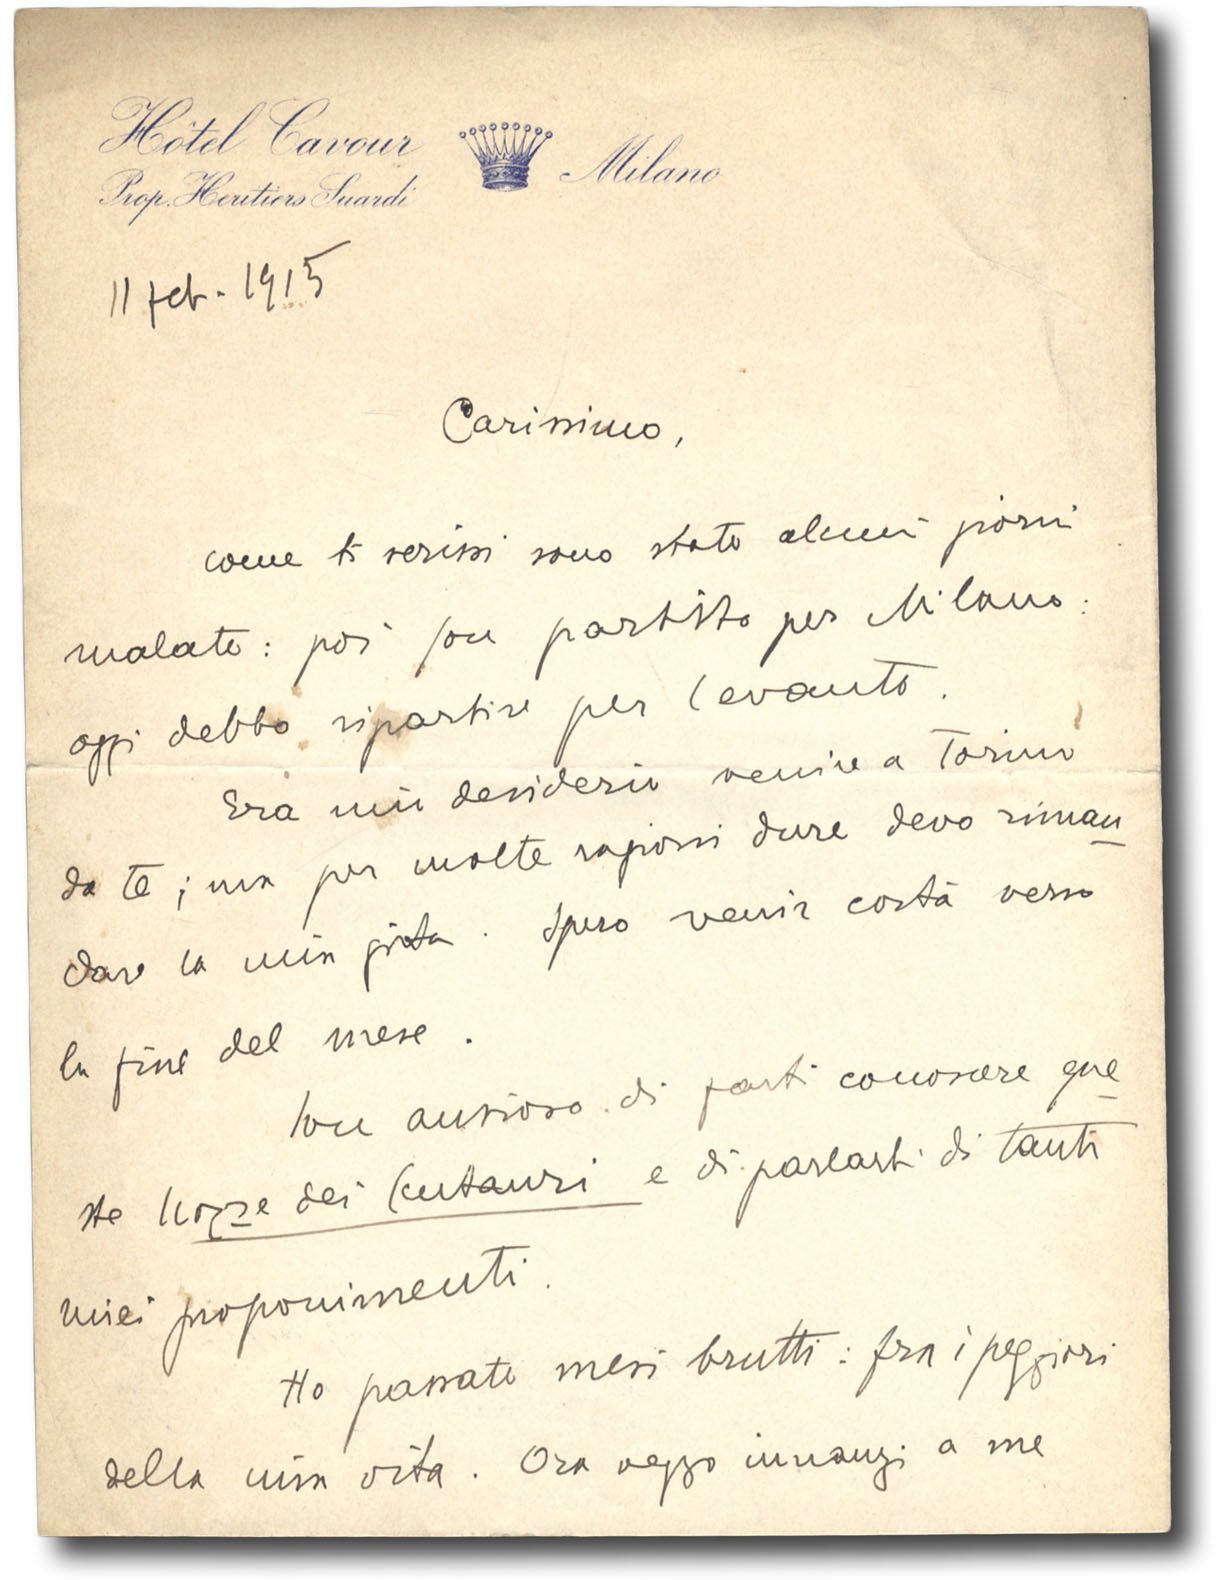 Hôtel Cavour
Milano
Prop. Heritiers Suardi
11 feb. 1915
Carissimo,
come ti scrissi sono stato alcuni giorni
malato: poi son partito per Milano:
oggi debbo ripartire per Levanto.
Era mio desiderio venire a Torino
da te; ma per molte ragioni dure devo riman
dare la mia gita. Spero venir costà verso
la fine del mese.
Son ansioso di farti conoscere que
ste Nozze dei Centauri e di parlarti di tanti
miei proponimenti.
Ho passato mesi brutti: fra i peggiori
della mia vita. Ora veggo innanzi a me